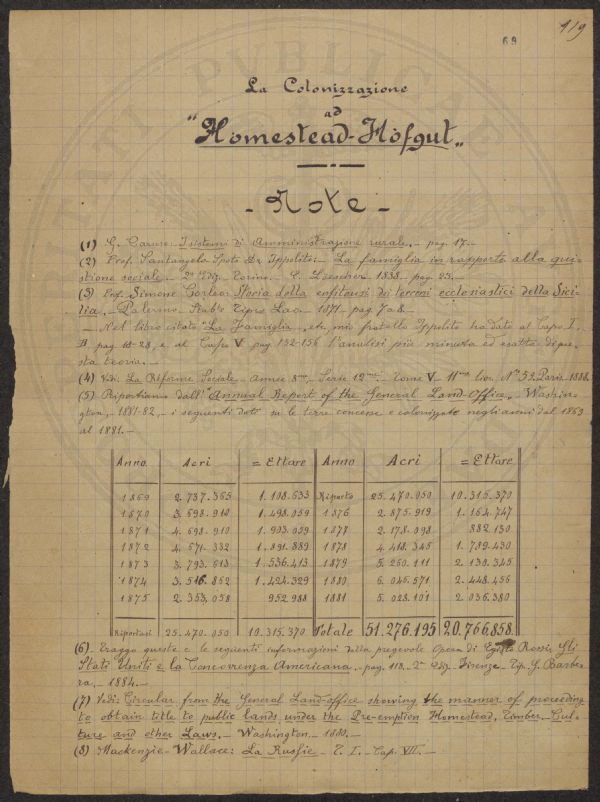 69
119
La Colonizzazione
ad
"Homestead-Hôfgut„
- Note -
(1) G. Caruso: I sistemi di Amministrazione rurale. - pag. 17. -
(2) Prof. Santangelo Spoto Dr Ippolito: - La famiglia in rapporto alla qui-
stione sociale. - 2ª Ediz. Torino. - E. Loescher 1888. pag. 23. -
(3) Prof. Simone Corleo: Storia della enfiteusi dei terreni ecclesiastici della Sici-
lia. - Palermo. 1871. - pag. 7 a 8. -
- Nel libro citato "La Famiglia, etc. mio fratello Ippolito ha dato al Capo I.
B pag. 18-28, e al Capo V pag. 132-156 l'analisi più minuta ed esatta di que-
sta teoria. -
(4) Vedi: La Réforme Sociale. - Tome V - Nº 52. Paris. 1888.
(5) Riportiamo dall' Annual Report of the General Land-Office. - Washin-
gton, - 1881-82, - i seguenti dati su le terre concesse e colonizzate negli anni dal 1869
al 1881. -
Anno Acri = Ettare Anno Acri = Ettare
1869 2. 737. 365 1. 108. 633 Riporto 25. 470. 050 10. 315. 370
1870 3. 698. 910 1. 498. 059 1876 2. 875. 919 1. 164. 747
1871 4. 698. 910 1. 903. 059 1877 2. 178. 098 882. 130
1872 4. 671. 332 1. 891. 889 1878 4. 418. 345 1. 789. 430
1873 3. 793. 613 1. 536. 413 1879 5. 260. 111 2. 130. 345
1874 3. 516. 862 1. 424. 329 1880 6. 045. 571 2. 448. 456
1875 2. 353. 058 952. 988 1881 5. 028. 101 2. 036. 380
Riportasi 25. 470. 050 10. 315. 370 Totale 51. 276. 195 20. 766. 858.
(6) - Traggo queste e le seguenti informazioni dalla pregevole Opera di Egisto Rossi, Gli
Stati Uniti e la Concorrenza Americana. - pag. 118. - 2ª Ediz. - Firenze. - Tip. G. Barbè-
ra, - 1884. -
(7) Vedi: Circular from the General Land-office showing the manner of proceeding
to obtain title to public lands under the Pre-emption Homestead, Timber-Cul-
ture and other Laws. - Washington. - 1880. -
(8) Mackenzie-Wallace: La Russie - T. I. - Cap. VII. -